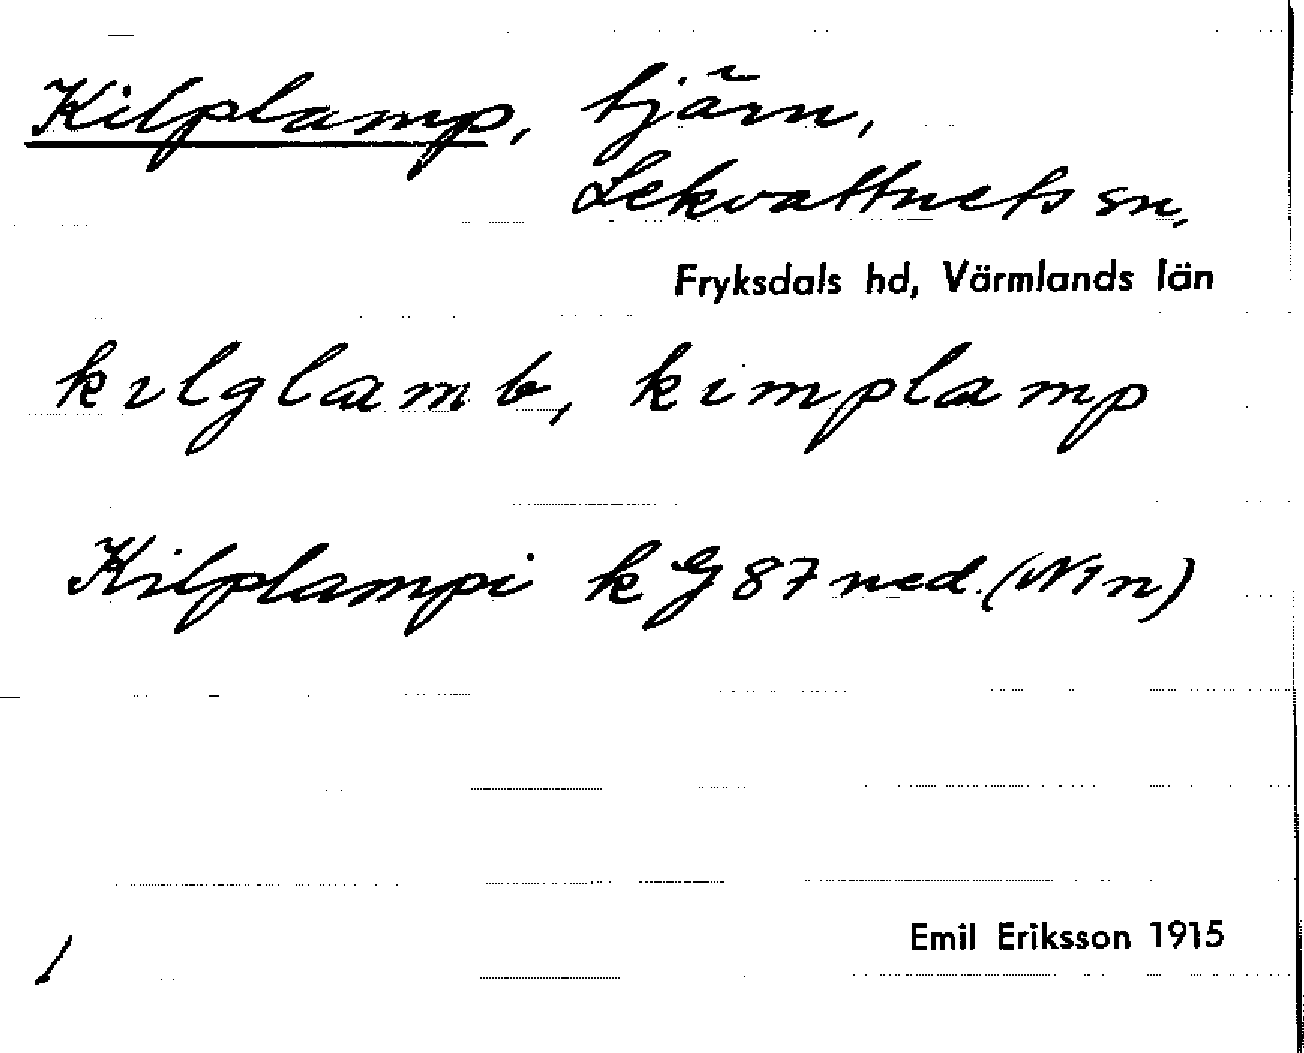 Kilplamp, tjärn,
Lekvattnets sn,
Fryksdals hd, Värmlands län
kılglamb, kımplamp
Kilplampi k G 87 ned. (N1n)
Emil Eriksson 1915
1